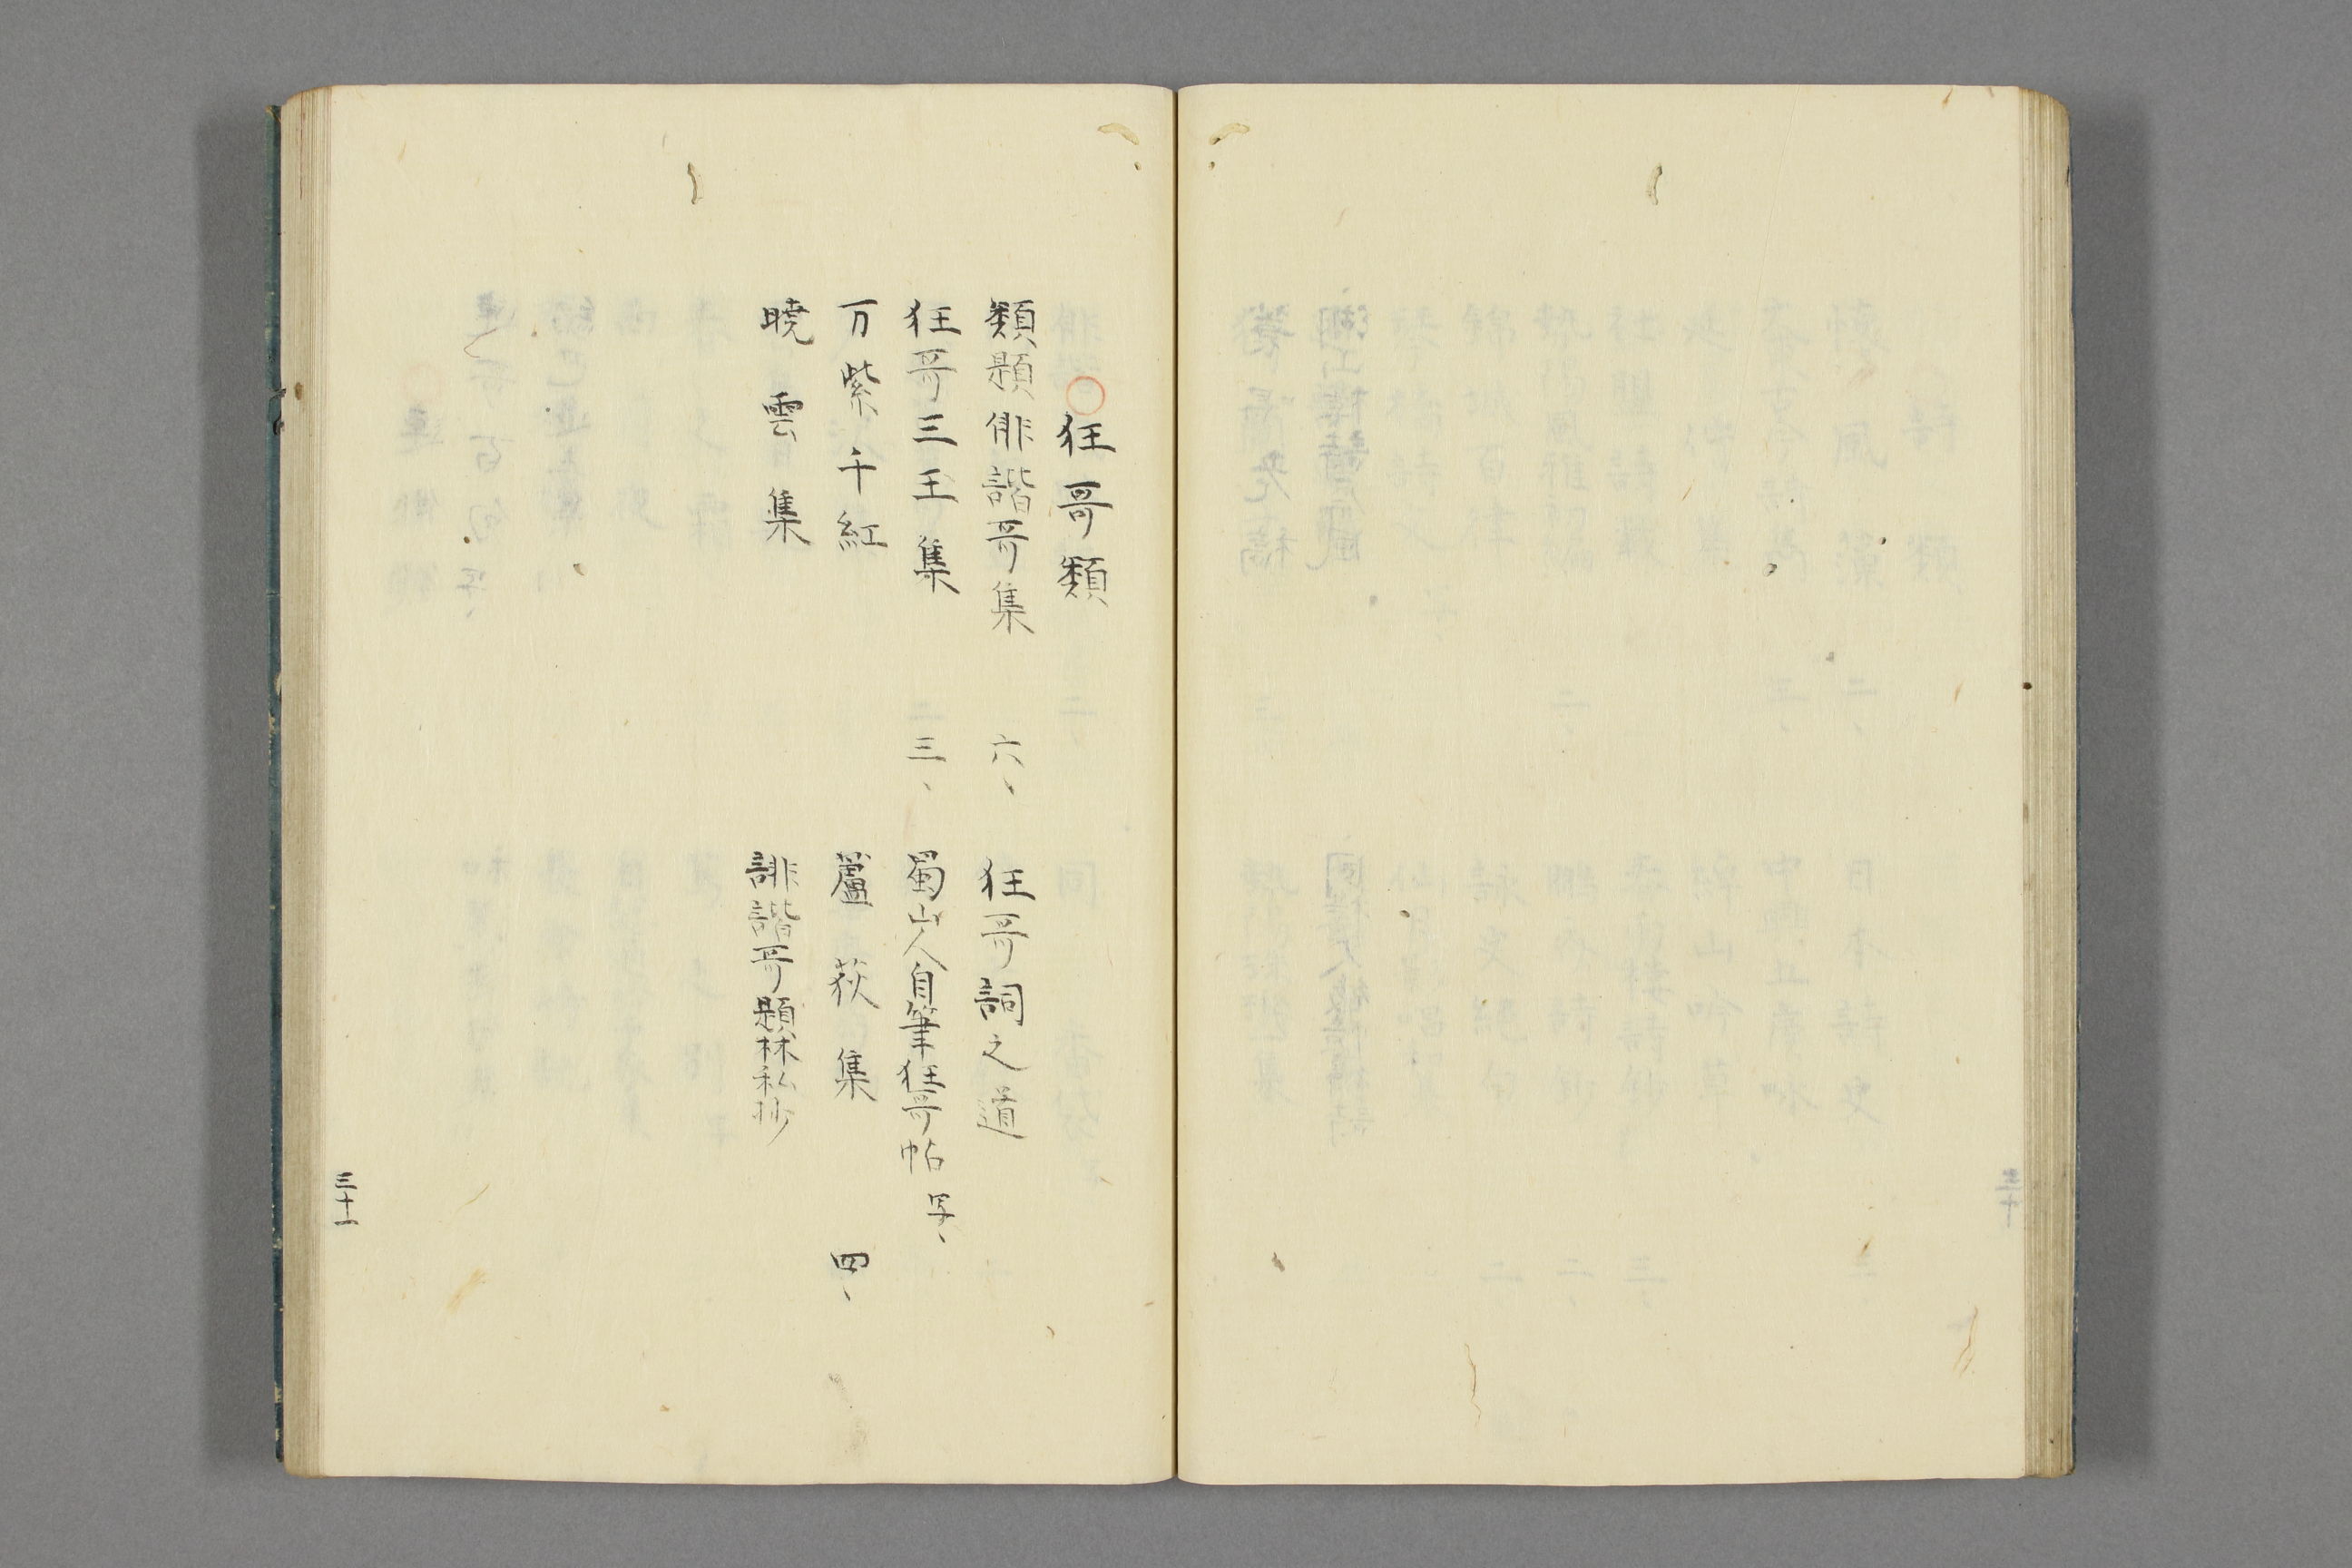 ○狂哥類
類題俳諧哥集 六、
狂哥詞之道
狂哥三王集 三、
蜀山人自筆狂哥帖 写、
万紫千紅
蘆荻集 四、
暁雲集
誹諧哥題林私抄
三十一